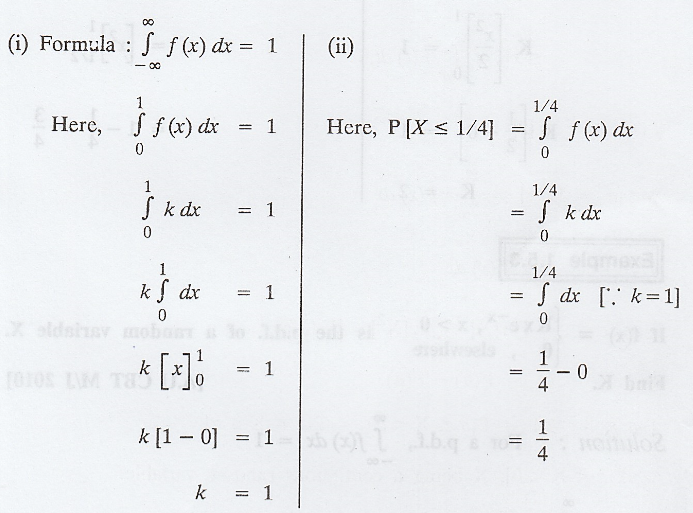 (i) Formula : ∫_{-∞}^{∞} f (x) dx = 1
Here, ∫_{0}^{1} f (x) dx = 1
∫_{0}^{1} k dx = 1
k ∫_{0}^{1} dx = 1
k [x]_{0}^{1} = 1
k [1 − 0] = 1
k = 1
(ii)
Here, P [X ≤ 1/4] = ∫_{0}^{1/4} f (x) dx
= ∫_{0}^{1/4} k dx
= ∫_{0}^{1/4} dx [∵ k=1]
= 1/4 − 0
= 1/4